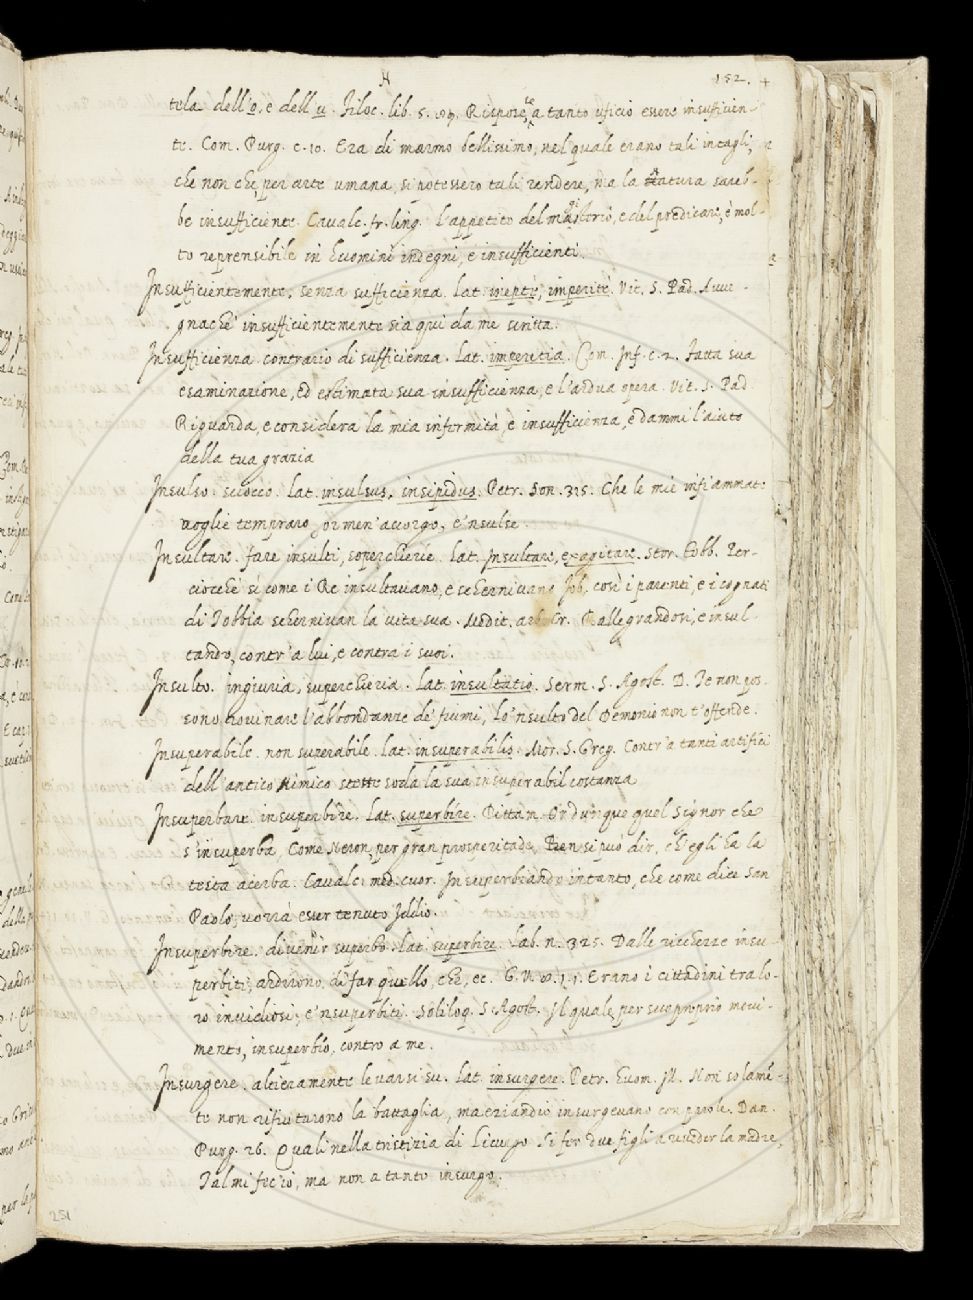 N 152. +
tela dell'o. e dell'u. Filoc. lib. 5. Rispose, a tanto uficio essere insufficien-
te. Com. Purg. c. 10. Era di marmo bellissimo, nel quale erano tali intagli,
che non che, per arte umana, si potessero tali rendere, ma la natura sareb-
be insufficiente. Cavalc. fr. ling. l'appetito del magisterio, e del predicare, è mol-
to reprensibile in huomini indegni, e insufficienti.
Insufficientemente. senza sufficienza. Lat. ineptè, imperitè. Vit. S. Pad. Avve-
gnachè insufficientemente sia qui da me scritta.
Insufficienza. contrario di sufficienza. Lat. imperitia. Com. Inf. c. 2. Fatta sua
esaminazione, ed estimata sua insufficienza, e l'ardua opera. Vit. S. Pad.
Riguarda, e considera la mia infermità, e insufficienza, e dammi l'aiuto
della tua grazia
Insulso. sciocco. Lat. insulsus, insipidus. Petr. Son. 315. Che le mie infiammate
voglie tempraro, or men'accorgo, e'nsulse.
Insultare. fare insulti, soperchierie. Lat. Insultare, exagitare. Stor. Tobb. Per-
ciocchè sì come i Re insultavano, e schernivano Job, così i parenti, e i cognati
di Tobbia schernivan la vita sua. Medit. arb. Cr. Rallegrandosi, e insul-
tando, contr'a lui, e contra i suoi.
Insulto. ingiuria, superchieria. Lat. insultatio. Serm. S. Agost. D. Te non pos-
sono rovinare l'abbondanze de' fiumi, lo'nsulto del Demonio non t'offende.
Insuperabile. non superabile. Lat. insuperabilis. Mor. S. Greg. Contr'a tanti artifici
dell'antico Nimico stette soda la sua insuperabil costanza
Insuperbare. insuperbire. Lat. superbire. Dittam. Or dunque quel Signor che
s'insuperba, Come Neron, per gran prosperitade, Ben si può dir, ch'egli ha la
testa acerba. Cavalc. med. cuor. Insuperbiando intanto, che come dice San
Paolo, vorrà esser tenuto Iddio.
Insuperbire. divenir superbo. Lat. superbire. Lab. n. 325. Dalle ricchezze insu-
perbiti, ardirono, di far quello, che, ec. G. V. Erano i cittadini tra lo-
ro invidiosi, e'nsuperbiti. Solilog. S. Agost. Il quale per suo proprio movi-
mento, insuperbio, contro a me.
Insurgere. altieramente levarsi su. Lat. insurgere. Petr. Huom. Ill. Non solamē-
te non rifiutarono la battaglia, ma eziandio insurgevano con parole. Dan.
Purg. 26. Quali nella tristizia di Licurgo Si fer due figli a riveder la madre,
Tal mi fec'io, ma non a tanto insurgo.
251